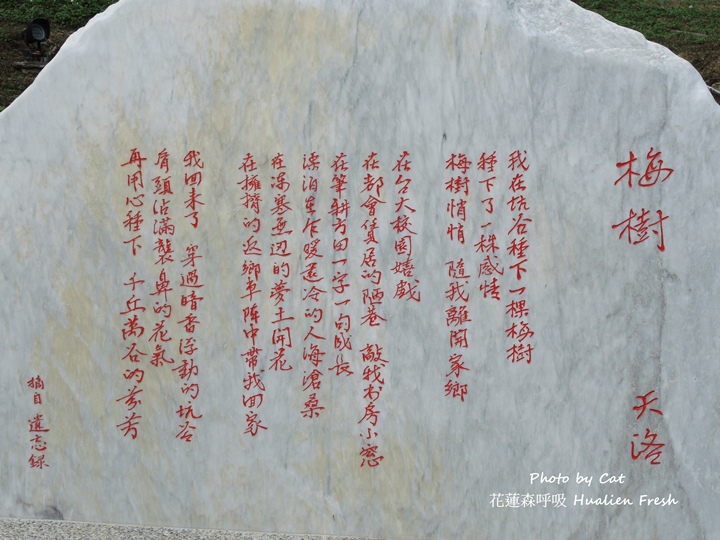 梅樹
天洛
我在坑谷種下一棵梅樹
種下了一株感情
梅樹悄悄 隨我離開家鄉
在台大校園嬉戲
在都會賃居的陋巷 敲我书房小窓
在筆耕方田一字一句成長
漂泊在乍暖還冷的人海滄桑
在冻寒無边的夢土開花
在擁擠的返鄉車陣中帶我回家
我回來了 穿過暗香浮動的坑谷
肩頭沾滿襲鼻的花氣
再用心種下 千丘萬谷的芬芳
摘自 遺忘錄
Photo by Cat
花蓮森呼吸 Hualien Fresh